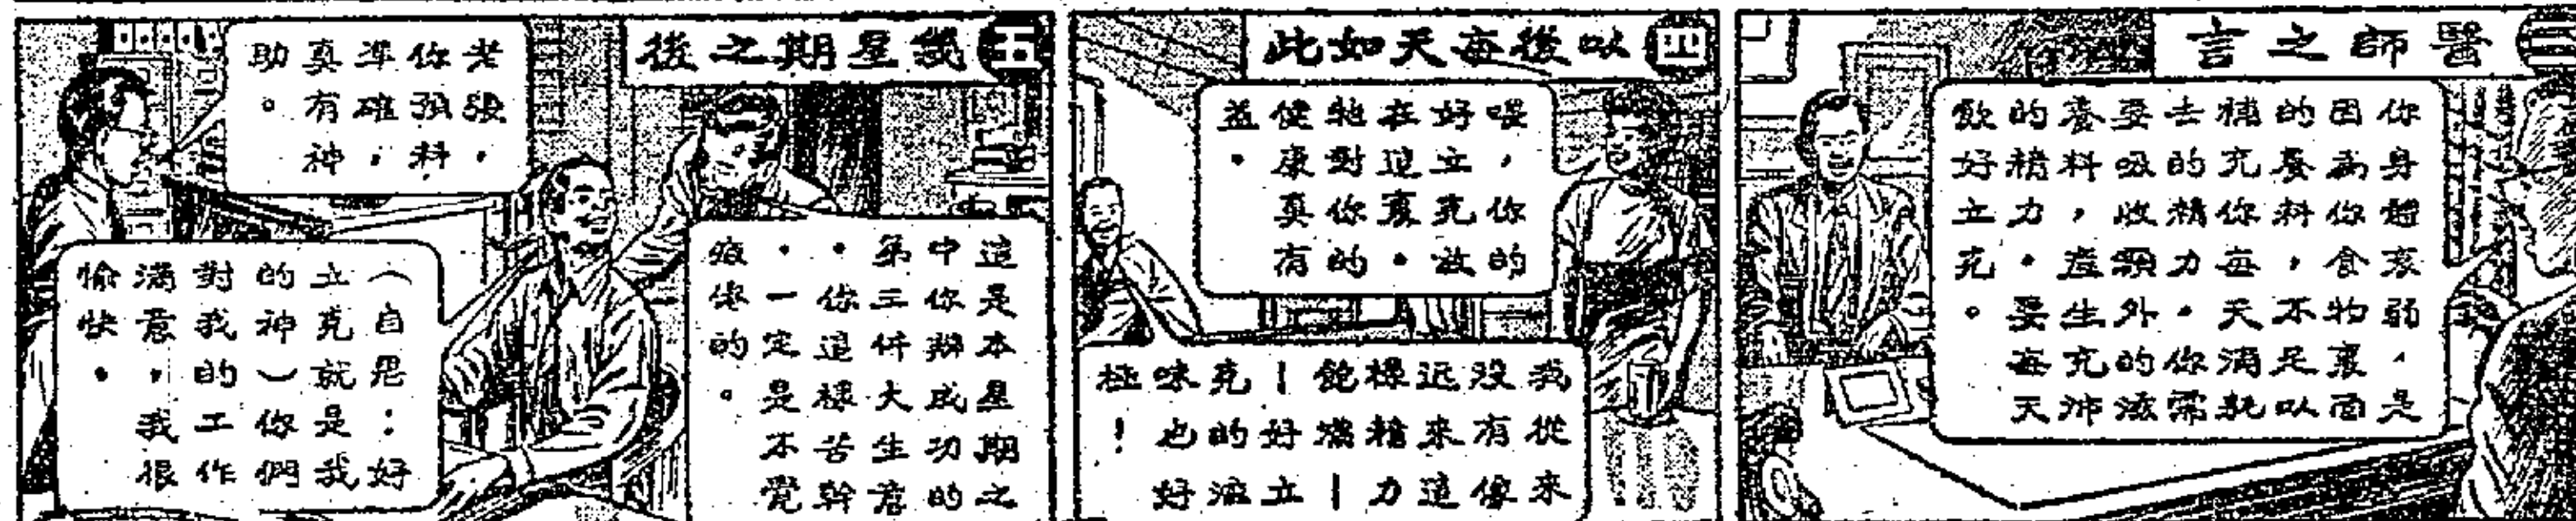 醫師之言
你身體衰弱，是
因為你食物裏面
的養料，不足以
補充你每天消耗
去的精力。你需
要吸收額外的滋
養料，產生充沛
的精力。要每天
飲好立克。
四
以後每天如此
喂，你的
好立克放
在這裏。
牠對你的
健康真有
益。
我從來
沒有像
近來這
樣精力
飽滿
|好立|
克的滋
味也好
極！
五
幾星期之後
老張，
你預料
準確，
真有神
助。
這是本星期之
中你辦成功的
第三件大生意
。你這樣苦幹
，一定是不覺
疲倦的。
（自思：好
立克就是我
的神）你們
對我的工作
滿意，我很
愉快。